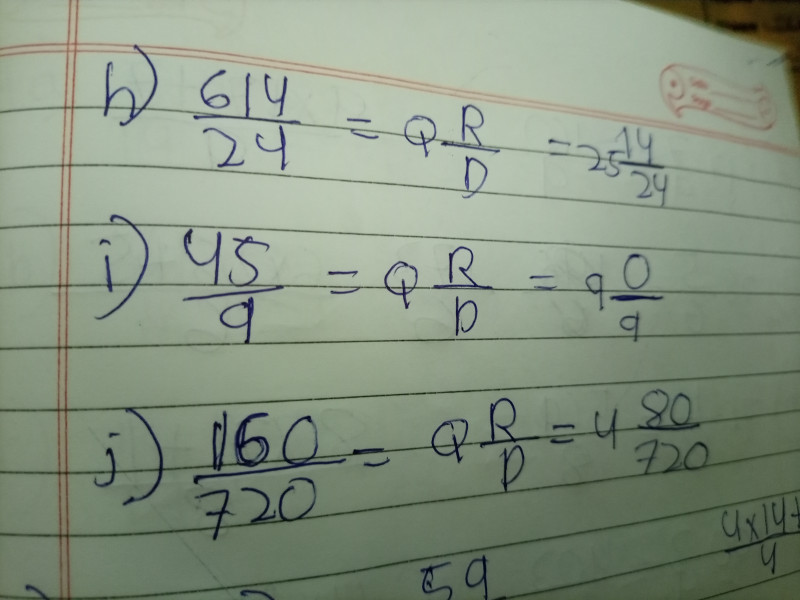 h) 614/24 = Q R/D = 25 14/24
i) 45/9 = Q R/D = 9 0/9
j) 160/720 = Q R/D = 4 80/720
59
4x14+/4